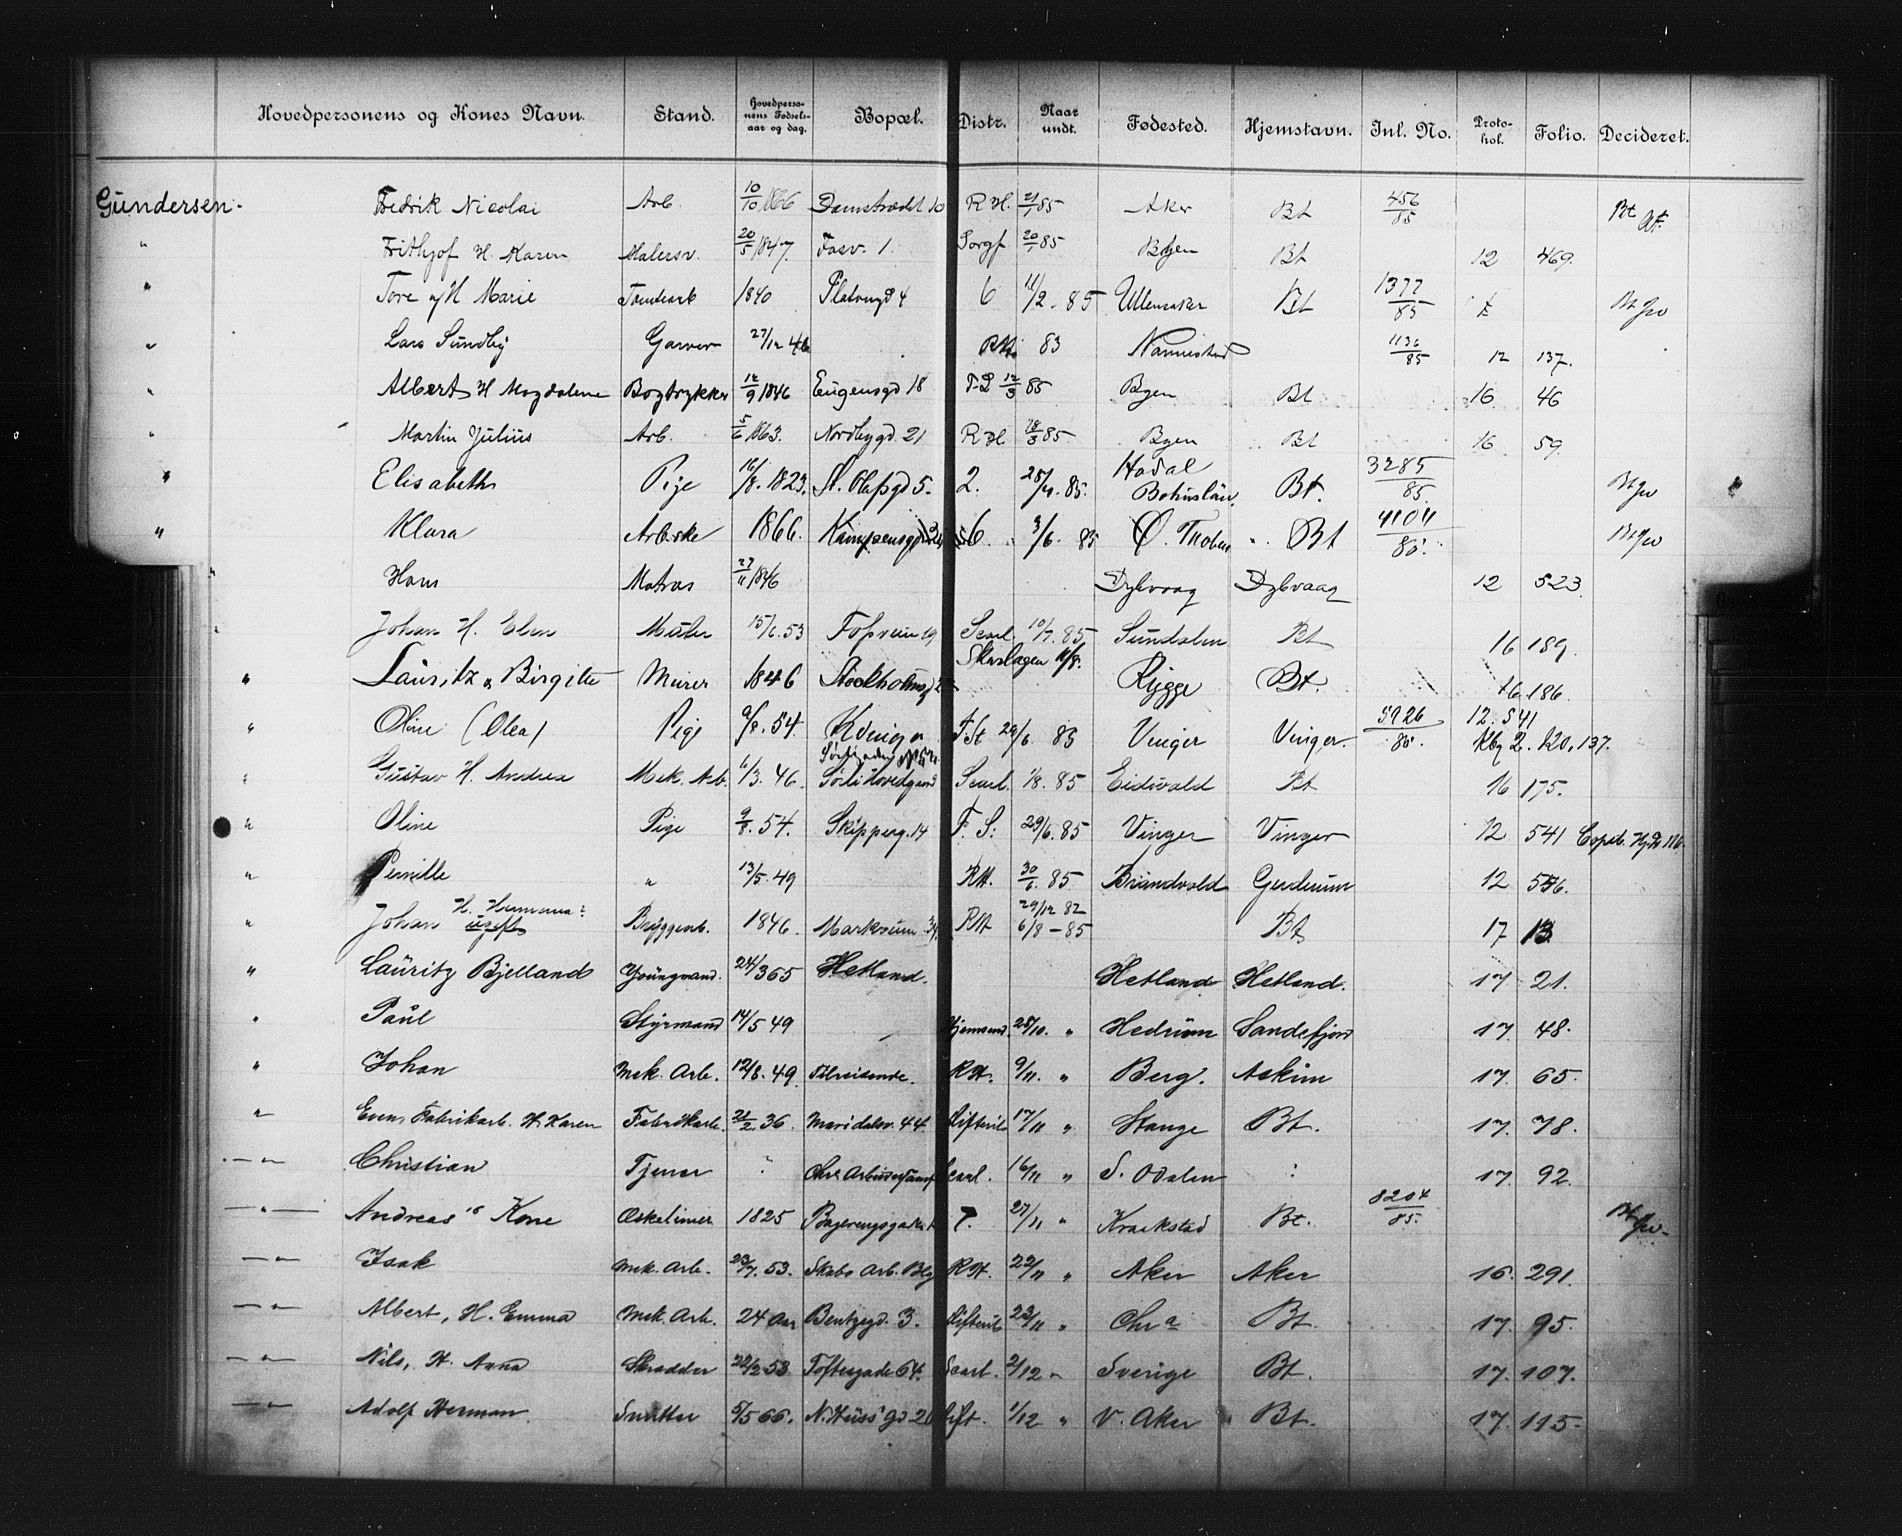 Hovedpersonens og Kones Navn. Stand. Hovedpersonens Fødselsaar og dag. Bopæl. Distr. Naar undt. Fødested. Hjemstavn. Inl. No. Protokol. Folio. Decideret.
Gundersen - Fredrik Nicolai Arb. 10/10 1866 Damstrædet 10 R.H. 21/1 85 Aker Bt 456/85 Bt
" Frithjof H. Karen Malersv. 20/5 1847. Fosv. 1. Sorgf 20/1 85 Byen Bt 12 469.
" Tore og H Marie Tomtearb 1840 Platougd 4 6 11/2. 85 Ullensaker Bt 1377/85 Bt Jw
" Lars Sundby Garver 27/12 46 RH. 83 Nannestad 1136/85 12 137.
" Albert H Magdalene Bogtrykker 12/9 1846 Eugensgd 18 F.L 12/3 85 Byen Bt 16 46
" Martin Julius Arb. 5/6 1863. Nordbygd. 21 R H 18/3 85 Byen Bt 16 59.
" Elisabeth Pige 16/8. 1823. St. Olafsgd 5. 2. 28/4. 85. Hodal Bohuslän. Bt. 3285/85. Bt Jw
" Klara Arbske 1866. Kampensgd 6. 3/6. 85 Ø. Thoten Bt 4104/85. Bt Jw
" Hans Matros 27/11 1846 Dybvaag Dybvaag 12 523.
" Johan H. Elen Maler 15/1. 53 Fossveien 19 Scarl. 10/7. 85 Sundalen Bt 16 189.
" Lauritz og Birgitte Murer 1846 Stockholmsg Skarlagen 11/8. Rygge Bt. 16 186.
" Oline (Olea) Pige 9/8. 54. F.St 29/6 85 Vinger Vinger. 5926/85. 12. 541 Kbg 2. 120, 137.
" Gustav H. Andrea Mek. Arb. 6/3. 46. Scarl. 1/8. 85 Eidsvold Bt 16 175.
" Oline Pige 9/8. 54. Skipperg. 14 F. S. 29/6. 85 Vinger Vinger 12 541
" Pernille " 13/5. 49 RH. 30/6. 85 Brandvold Gerdrum 12 556.
" Johan H. Hermana? ugift Bryggearb. 1846. Markveien 39. RH 29/12 82 6/8 - 85 Bt 17 13
" Lauritz Bjelland Youngmand. 24/3 65 Hetland. Hetland Hetland. 17 21.
" Paul Styrmand 14/5 49 Hjemsend. 28/10. " Hedrum Sandefjord 17. 48.
" Johan Mek. Arb. 12/8. 49. Tilreisende. RH. 9/11. " Berg. Askim 17. 65.
" Even, Fabrikarb. H. Karen Fabrikarb. 21/2. 36. Maridalsv. 44. Difterit 17/11 " Stange Bt. 17. 78.
— " — Christian Tjener " Chra Arbeidersamf Scarl. 16/11 " S. Odalen : 17. 92.
— " — Andreas og Kone Oskeljmer 1825 T. 27/11 " Kraakstad Bt. 8204/85. Bt Jw.
— " — Isak Mek. Arb. 23/7. 53. Skabo Arb. Blg RH. 22/11 " Aker Aker 16. 291.
— " — Albert, H. Emma Mek. Arb. 24 Aar Bentzegd. 3. Difterit 23/11 " Chra Bt. 17. 95.
— " — Nils, H. Anna Skrædder 22/2 53 Toftesgade 64. Scarl. 2/12 " Sverige Bt. 17. 107.
— " — Adolf Herman. Snedker 5/5 66. N. Huss' gd 20 Dift. 1/12 " V. Aker Bt. 17. 115.